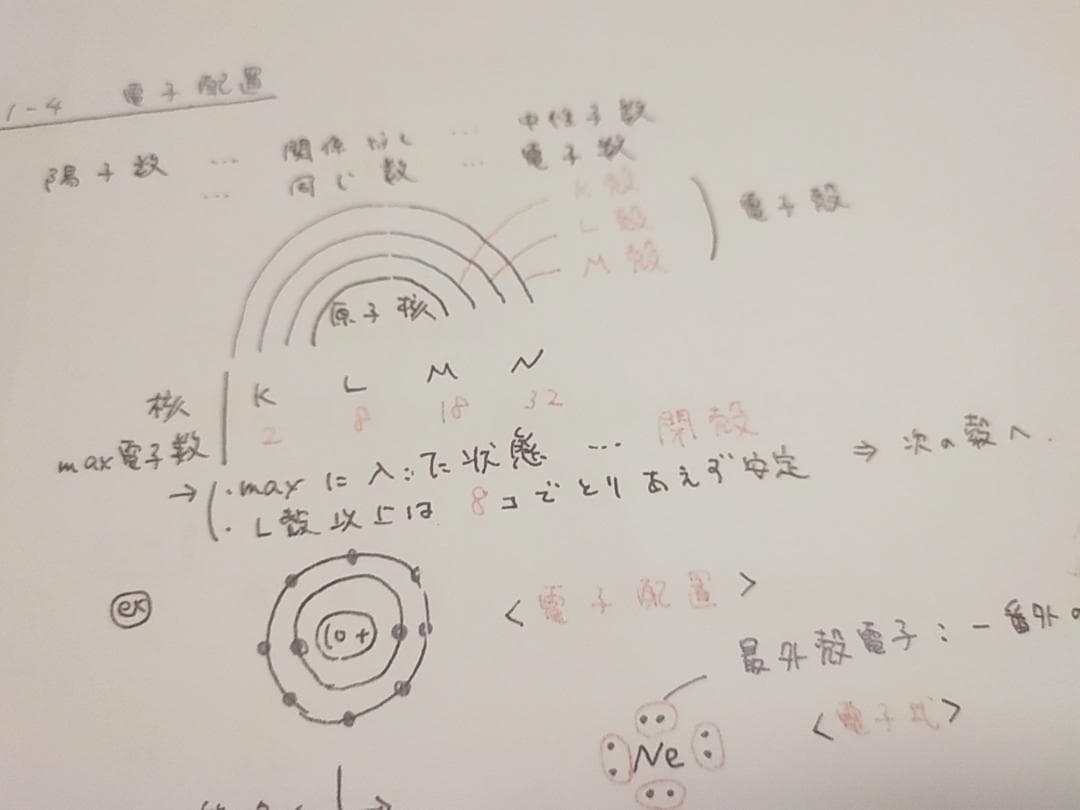 1-4 電子配置
陽子数 … 関係なし … 中性子数
… 同じ数 … 電子数
K殻
L殻
M殻
電子殻
原子核
核 K L M N
max電子数 2 8 18 32
→ ・maxに入った状態 … 閉殻
・L殻以上は 8コでとりあえず安定 ⇒ 次の殻へ.
ex
10+
<電子配置>
最外殻電子:一番外の
<電子式>
Ne